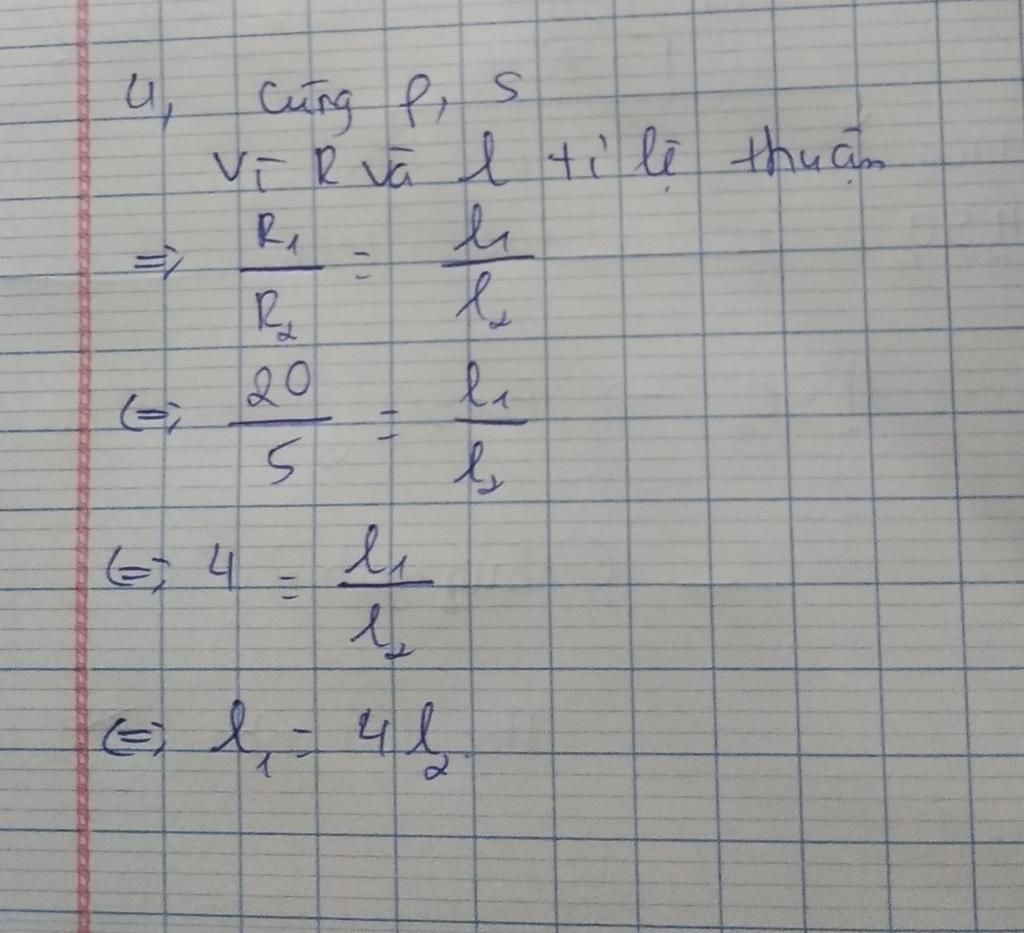 4, Cùng ρ, S
Vì R và l tỉ lệ thuận
=> R₁/R₂ = l₁/l₂
<=> 20/5 = l₁/l₂
<=> 4 = l₁/l₂
<=> l₁ = 4l₂.